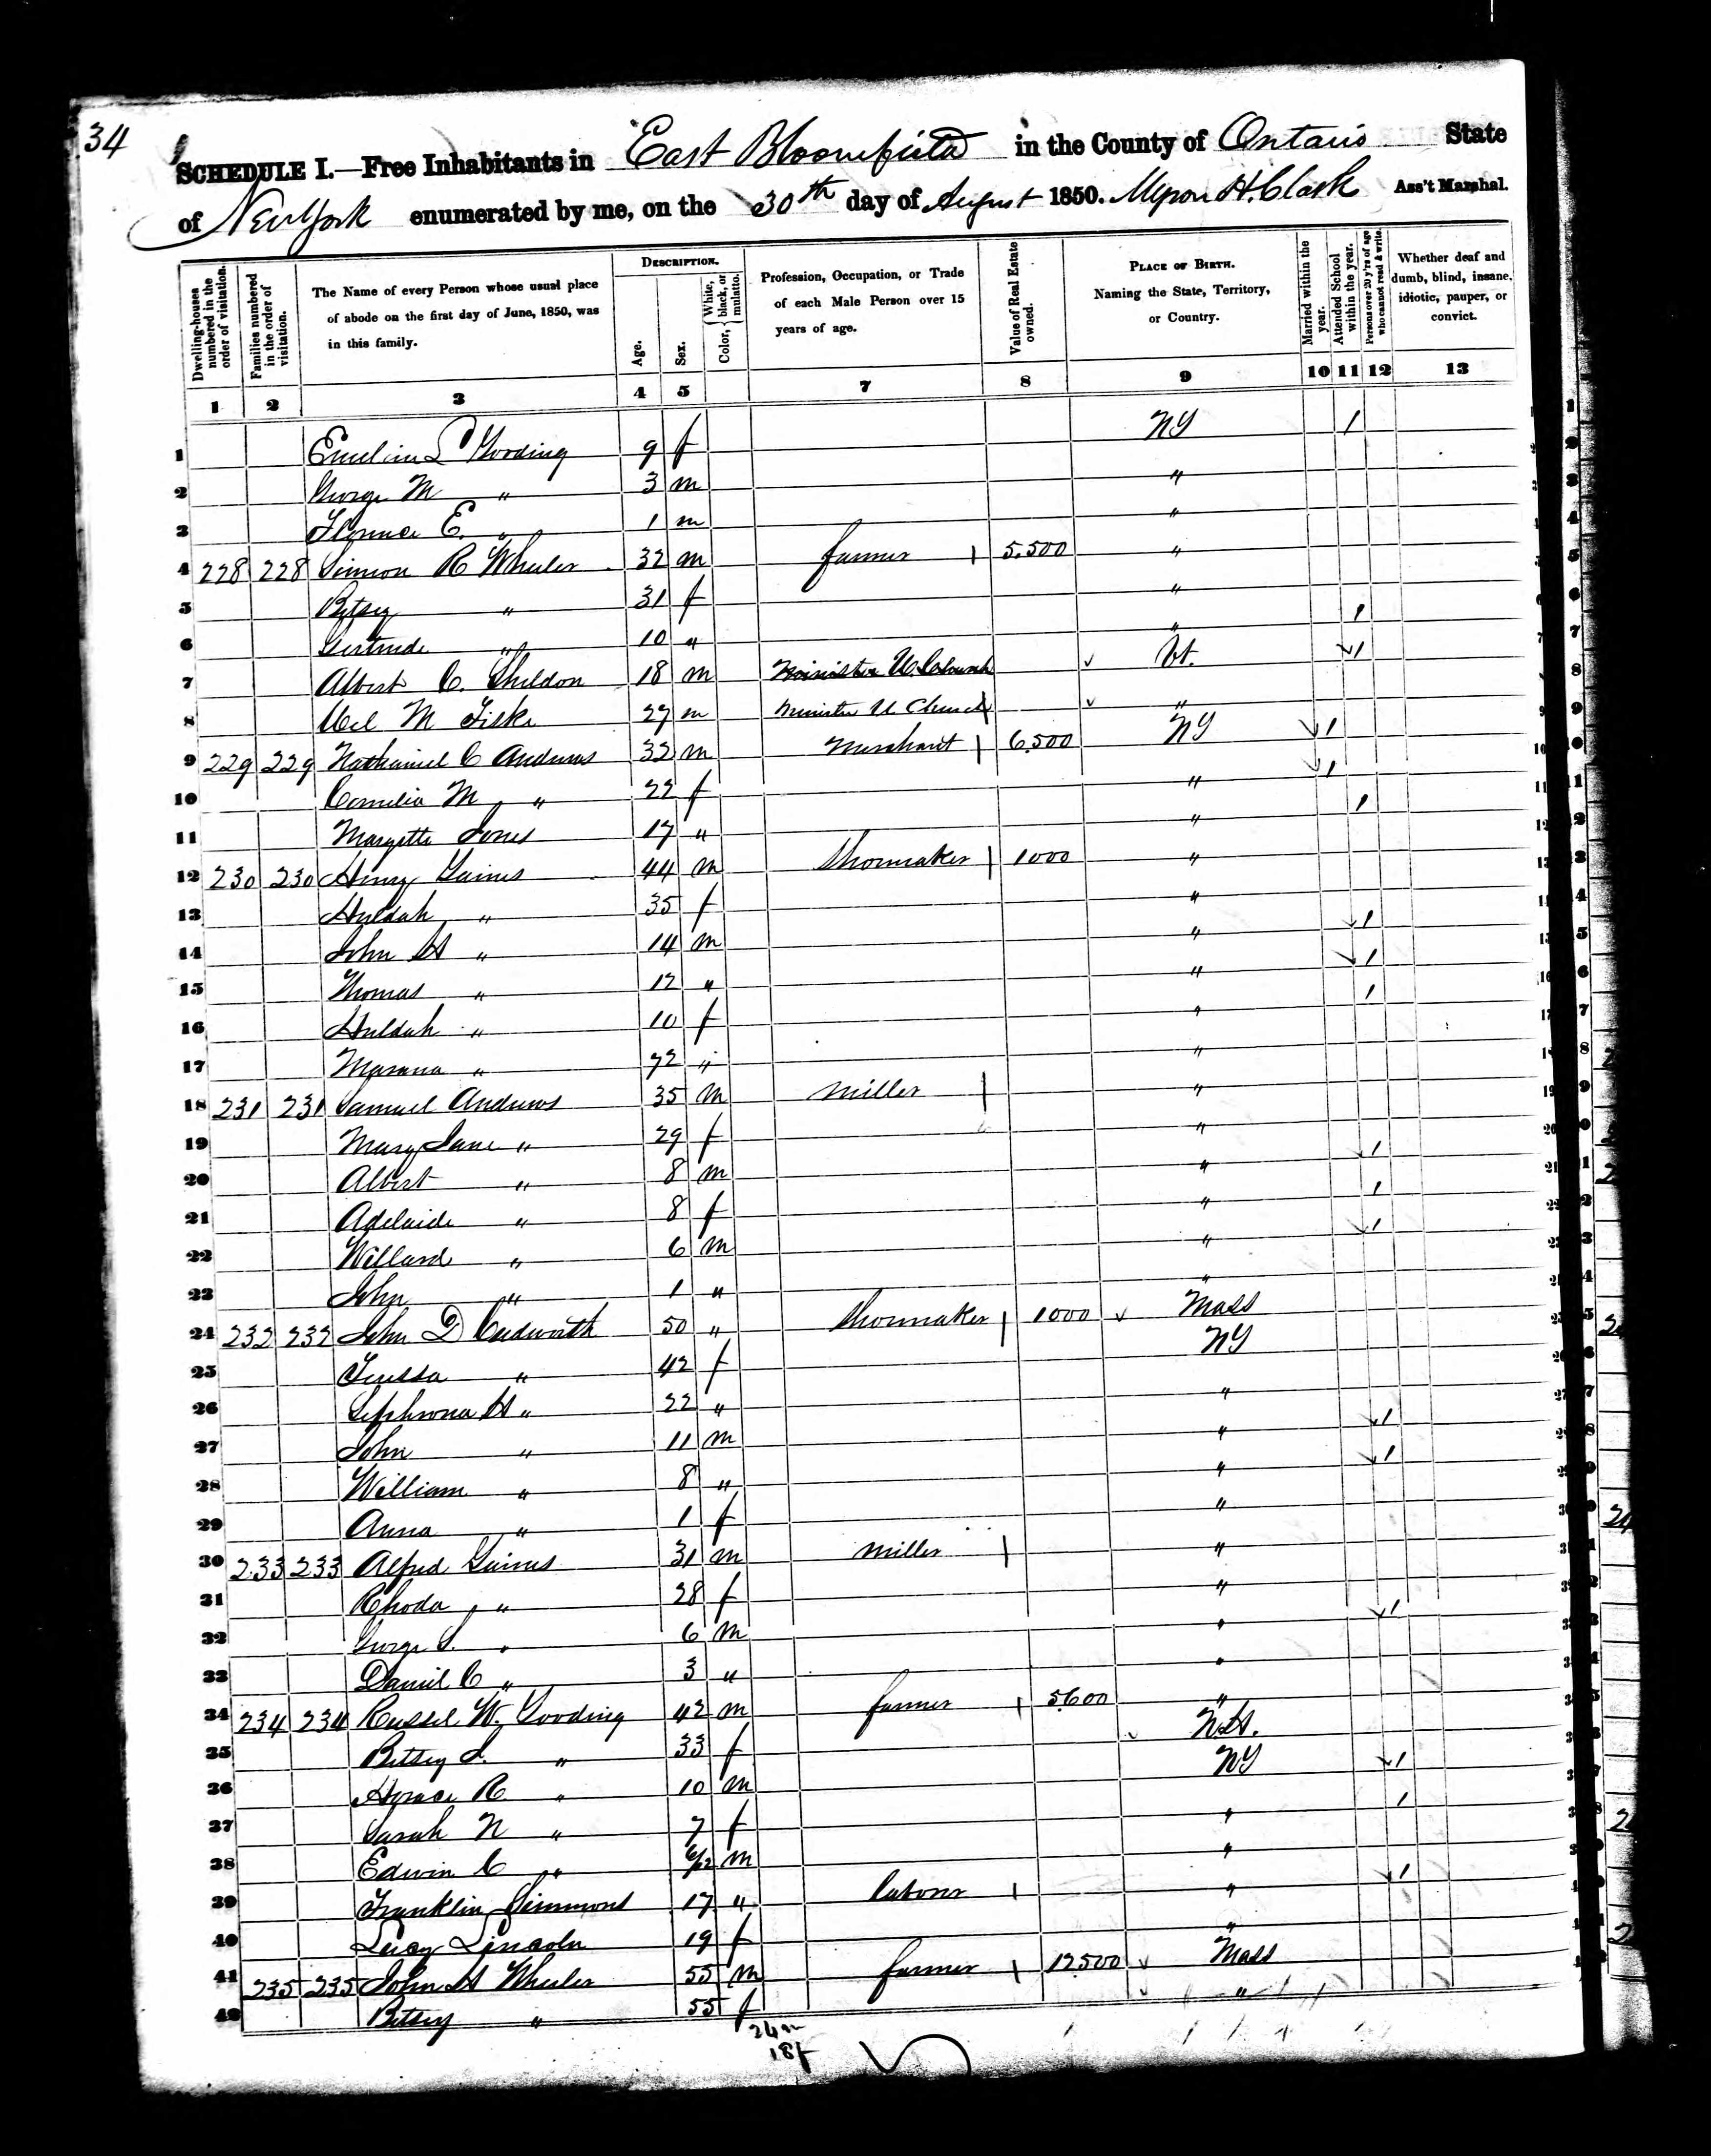 34
SCHEDULE I.—Free Inhabitants in East Bloomfield in the County of Ontario State
of New York enumerated by me, on the 30th day of August 1850. Myron H. Clark Ass't Marshal.
Dwelling-houses numbered in the order of visitation.
Families numbered in the order of visitation.
The Name of every Person whose usual place of abode on the first day of June, 1850, was in this family.
DESCRIPTION.
Age.
Sex.
Color, { White, black, or mulatto.
Profession, Occupation, or Trade of each Male Person over 15 years of age.
Value of Real Estate owned.
PLACE OF BIRTH. Naming the State, Territory, or Country.
Married within the year.
Attended School within the year.
Persons over 20 y'rs of age who cannot read & write.
Whether deaf and dumb, blind, insane, idiotic, pauper, or convict.
1 2 3 4 5 7 8 9 10 11 12 13
1 Emeline L Gooding 9 f NY 1
2 George M " 3 m "
3 Florence E. " 1 m "
4 228 228 Simeon R Wheeler 32 m farmer 5.500 "
5 Betsey " 31 f "
6 Gertrude " 10 " " 1
7 Albert C. Sheldon 18 m Vt. 1
8 M Fiske 27 m Minister U Church "
9 229 229 Nathaniel C Andrews 32 m Merchant 6.500 NY 1
10 Cornelia M " 22 f " 1
11 Maryette Jones 17 " " 1
12 230 230 Henry Gaines 44 m Shoemaker 1000 "
13 Huldah " 35 f "
14 John H " 14 m " 1
15 Thomas " 12 " " 1
16 Huldah " 10 f " 1
17 " 72 " "
18 231 231 Samuel Andrews 35 m Miller "
19 Mary Jane " 29 f "
20 Albert " 8 m " 1
21 Adelaide " 8 f " 1
22 Willard " 6 m " 1
23 John " 1 " "
24 232 232 John D Cudworth 50 " Shoemaker 1000 Mass
25 " 42 f NY
26 H " 22 " "
27 John " 11 m " 1
28 William " 8 " " 1
29 Anna " 1 f "
30 233 233 Alfred Gaines 31 m Miller "
31 Rhoda " 28 f "
32 George S. " 6 m " 1
33 Daniel C " 3 " "
34 234 234 Russel W. Gooding 42 m farmer 5.600 "
35 Betsey S. " 33 f N.H.
36 Horace R " 10 m NY 1
37 Sarah N " 7 f " 1
38 Edwin C " 6/12 m "
39 Franklin Simmons 17 " laborer " 1
40 Lucy Lincoln 19 f "
41 235 235 John H Wheeler 55 m farmer 12500 Mass
42 Betsey " 55 f "
24 m
18 f